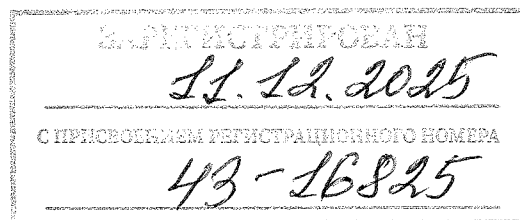 ЗАРЕГИСТРИРОВАН
11.12.2025
С ПРИСВОЕНИЕМ РЕГИСТРАЦИОННОГО НОМЕРА
43-16825